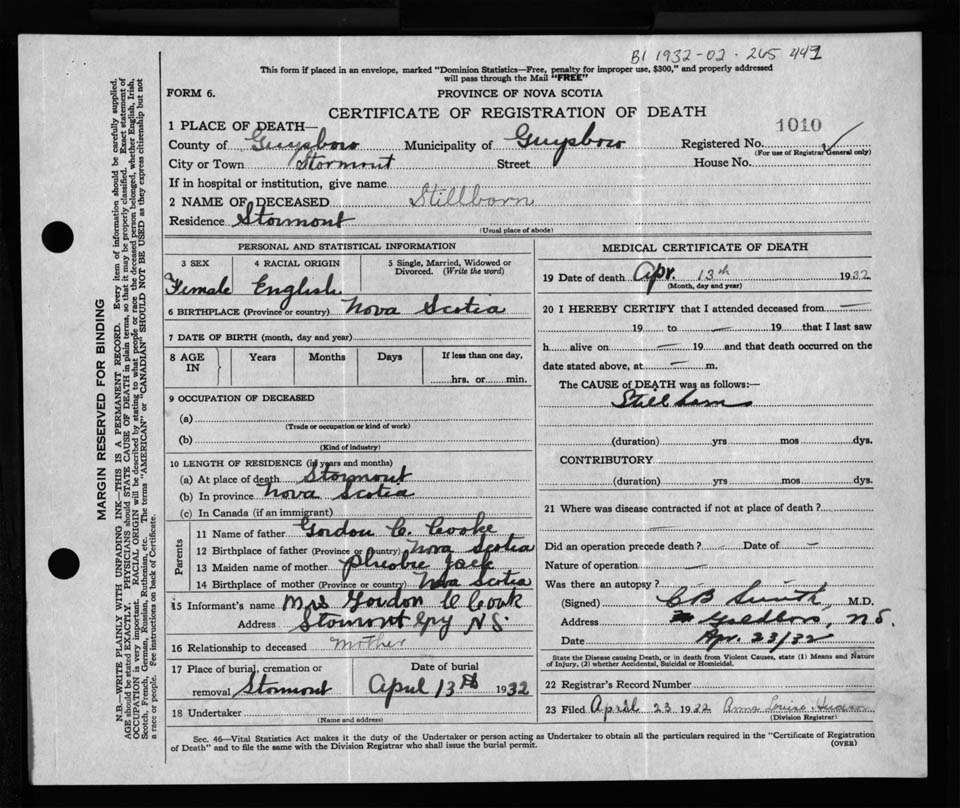 B1 1932-02-265 441
This form if placed in an envelope, marked "Dominion Statistics—Free, penalty for improper use, $300," and properly addressed
will pass through the Mail "FREE"
FORM 6.
PROVINCE OF NOVA SCOTIA
CERTIFICATE OF REGISTRATION OF DEATH
1 PLACE OF DEATH—
1010
County of Guysboro Municipality of Guysboro Registered No.
(For use of Registrar General only)
City or Town Stormont Street House No.
If in hospital or institution, give name
2 NAME OF DECEASED Stillborn
Residence Stormont
(Usual place of abode)
PERSONAL AND STATISTICAL INFORMATION
3 SEX 4 RACIAL ORIGIN 5 Single, Married, Widowed or
Divorced. (Write the word)
Female English
6 BIRTHPLACE (Province or country) Nova Scotia
7 DATE OF BIRTH (month, day and year)
8 AGE IN Years Months Days If less than one day,
hrs. or min.
9 OCCUPATION OF DECEASED
(a)
(Trade or occupation or kind of work)
(b)
(Kind of industry)
10 LENGTH OF RESIDENCE (in years and months)
(a) At place of death Stormont
(b) In province Nova Scotia
(c) In Canada (if an immigrant)
Parents
11 Name of father Gordon C. Cooke
12 Birthplace of father (Province or Country) Nova Scotia
13 Maiden name of mother Pheobie Jack
14 Birthplace of mother (Province or country) Nova Scotia
15 Informant's name Mrs Gordon C Cook
Address Stormont Guy N.S.
16 Relationship to deceased Mother
17 Place of burial, cremation or Date of burial
removal Stormont April 13th 1932
18 Undertaker
(Name and address)
MEDICAL CERTIFICATE OF DEATH
19 Date of death Apr. 13th 1932
(Month, day and year)
20 I HEREBY CERTIFY that I attended deceased from
19 to 19 that I last saw
h alive on 19 and that death occurred on the
date stated above, at m.
The CAUSE of DEATH was as follows:—
Still born
(duration) yrs mos dys.
CONTRIBUTORY
(duration) yrs mos dys.
21 Where was disease contracted if not at place of death?
Did an operation precede death? Date of
Nature of operation
Was there an autopsy?
(Signed) C B Smith, M.D.
Address Goldboro, N.S.
Date Apr. 23/32
State the Disease causing Death, or in death from Violent Causes, state (1) Means and Nature
of Injury, (2) whether Accidental, Suicidal or Homicidal.
22 Registrar's Record Number
23 Filed April 23 1932 Anna Louise
(Division Registrar)
Sec. 46—Vital Statistics Act makes it the duty of the Undertaker or person acting as Undertaker to obtain all the particulars required in the "Certificate of Registration
of Death" and to file the same with the Division Registrar who shall issue the burial permit. (OVER)
MARGIN RESERVED FOR BINDING
N.B.—WRITE PLAINLY WITH UNFADING INK—THIS IS A PERMANENT RECORD. Every item of information should be carefully supplied.
AGE should be stated EXACTLY. PHYSICIANS should STATE CAUSE OF DEATH in plain terms, so that it may be properly classified. Exact statement of
OCCUPATION is very important. RACIAL ORIGIN will be described by stating to what people or race the deceased person belonged, whether English, Irish,
Scotch, French, German, Russian, Ruthenian, etc. The terms "AMERICAN" or "CANADIAN" SHOULD NOT BE USED as they express citizenship but not
a race or people. See instructions on back of Certificate.